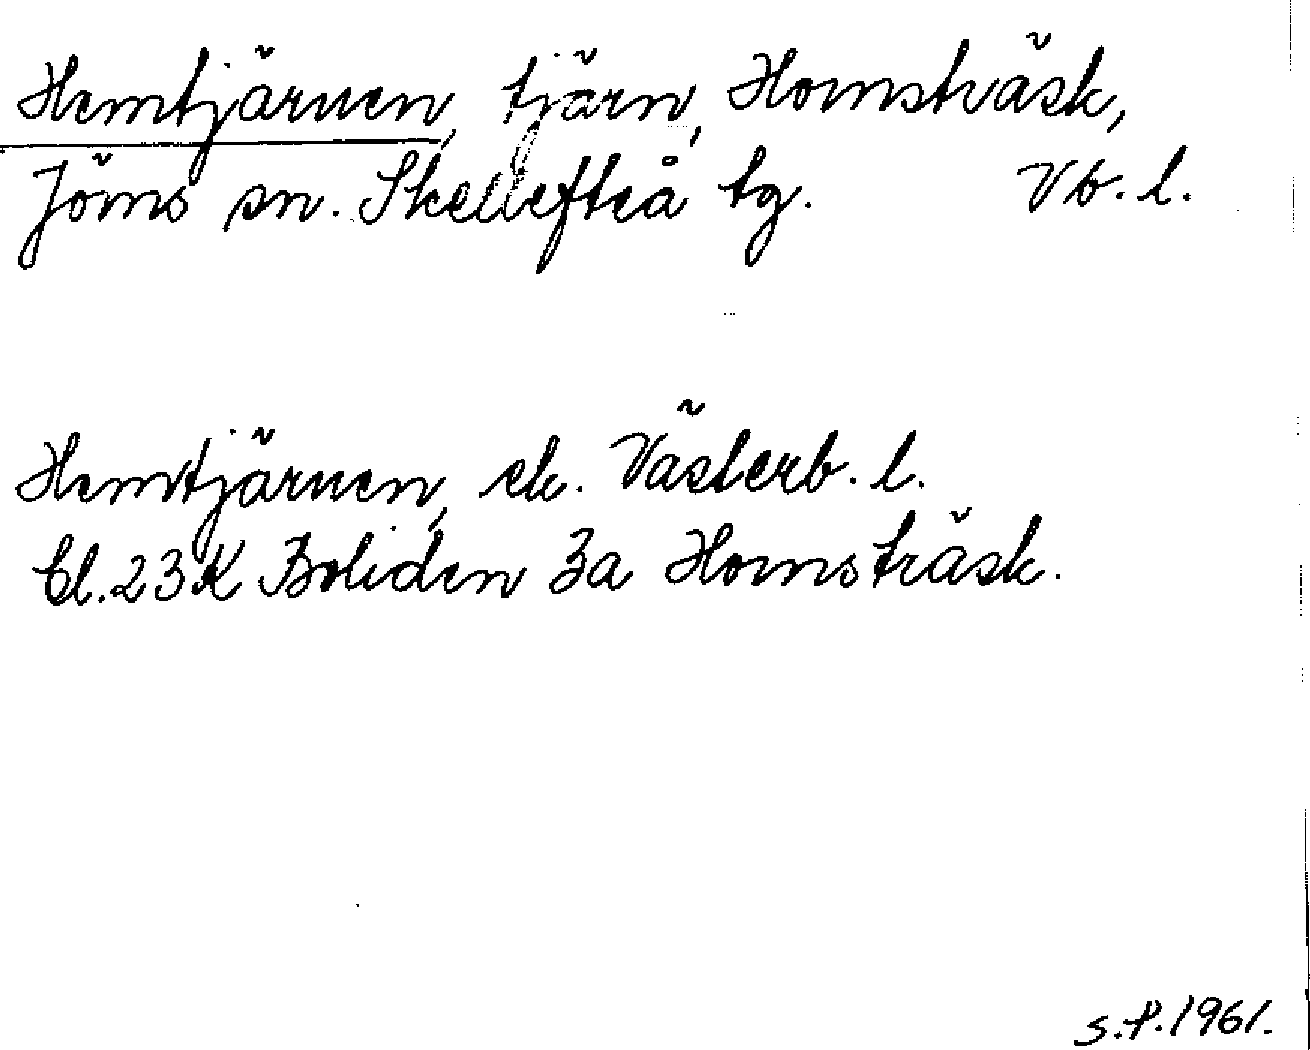 Hemtjärnen, tjärn, Hornsträsk,
Jörns sn. Skellefteå tg. Vb. l.
Hemtjärnen, ek. Västerb. l.
bl. 23 K Boliden 3a Hornsträsk.
S.P. 1961.